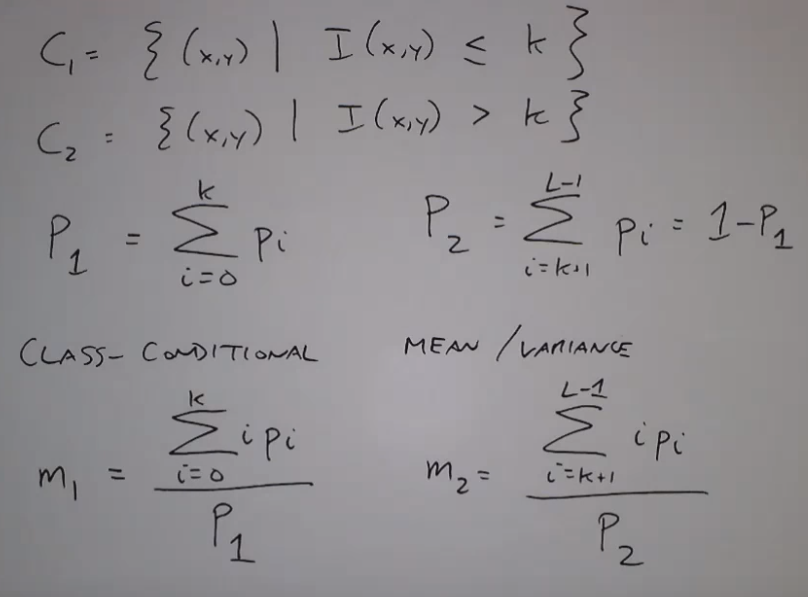 C₁ = { (x,y) | I(x,y) ≤ k }
C₂ = { (x,y) | I(x,y) > k }
P₁ = ∑_{i=0}^{k} pᵢ    P₂ = ∑_{i=k+1}^{L-1} pᵢ = 1-P₁
CLASS-CONDITIONAL MEAN/VARIANCE
m₁ = (∑_{i=0}^{k} i pᵢ) / P₁    m₂ = (∑_{i=k+1}^{L-1} i pᵢ) / P₂